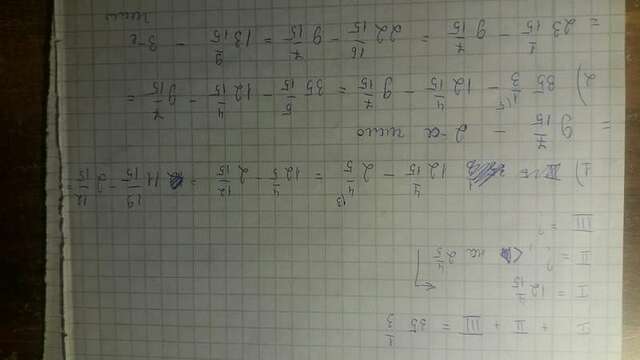 I + II + III = 35 1/3
I = 12 4/15
II = ?, < на 2 4/5
III = ?
1) 12 4/15 - 2 4/5 = 12 4/5 - 2 12/15 = 11 19/15 - 2 12/15 =
= 9 7/15 - 2-а число
2) 35 1/3 - 12 4/15 - 9 7/15 = 35 5/15 - 12 4/15 - 9 7/15 =
= 23 1/15 - 9 7/15 = 22 16/15 - 9 7/15 = 13 9/15 - 3-е
число